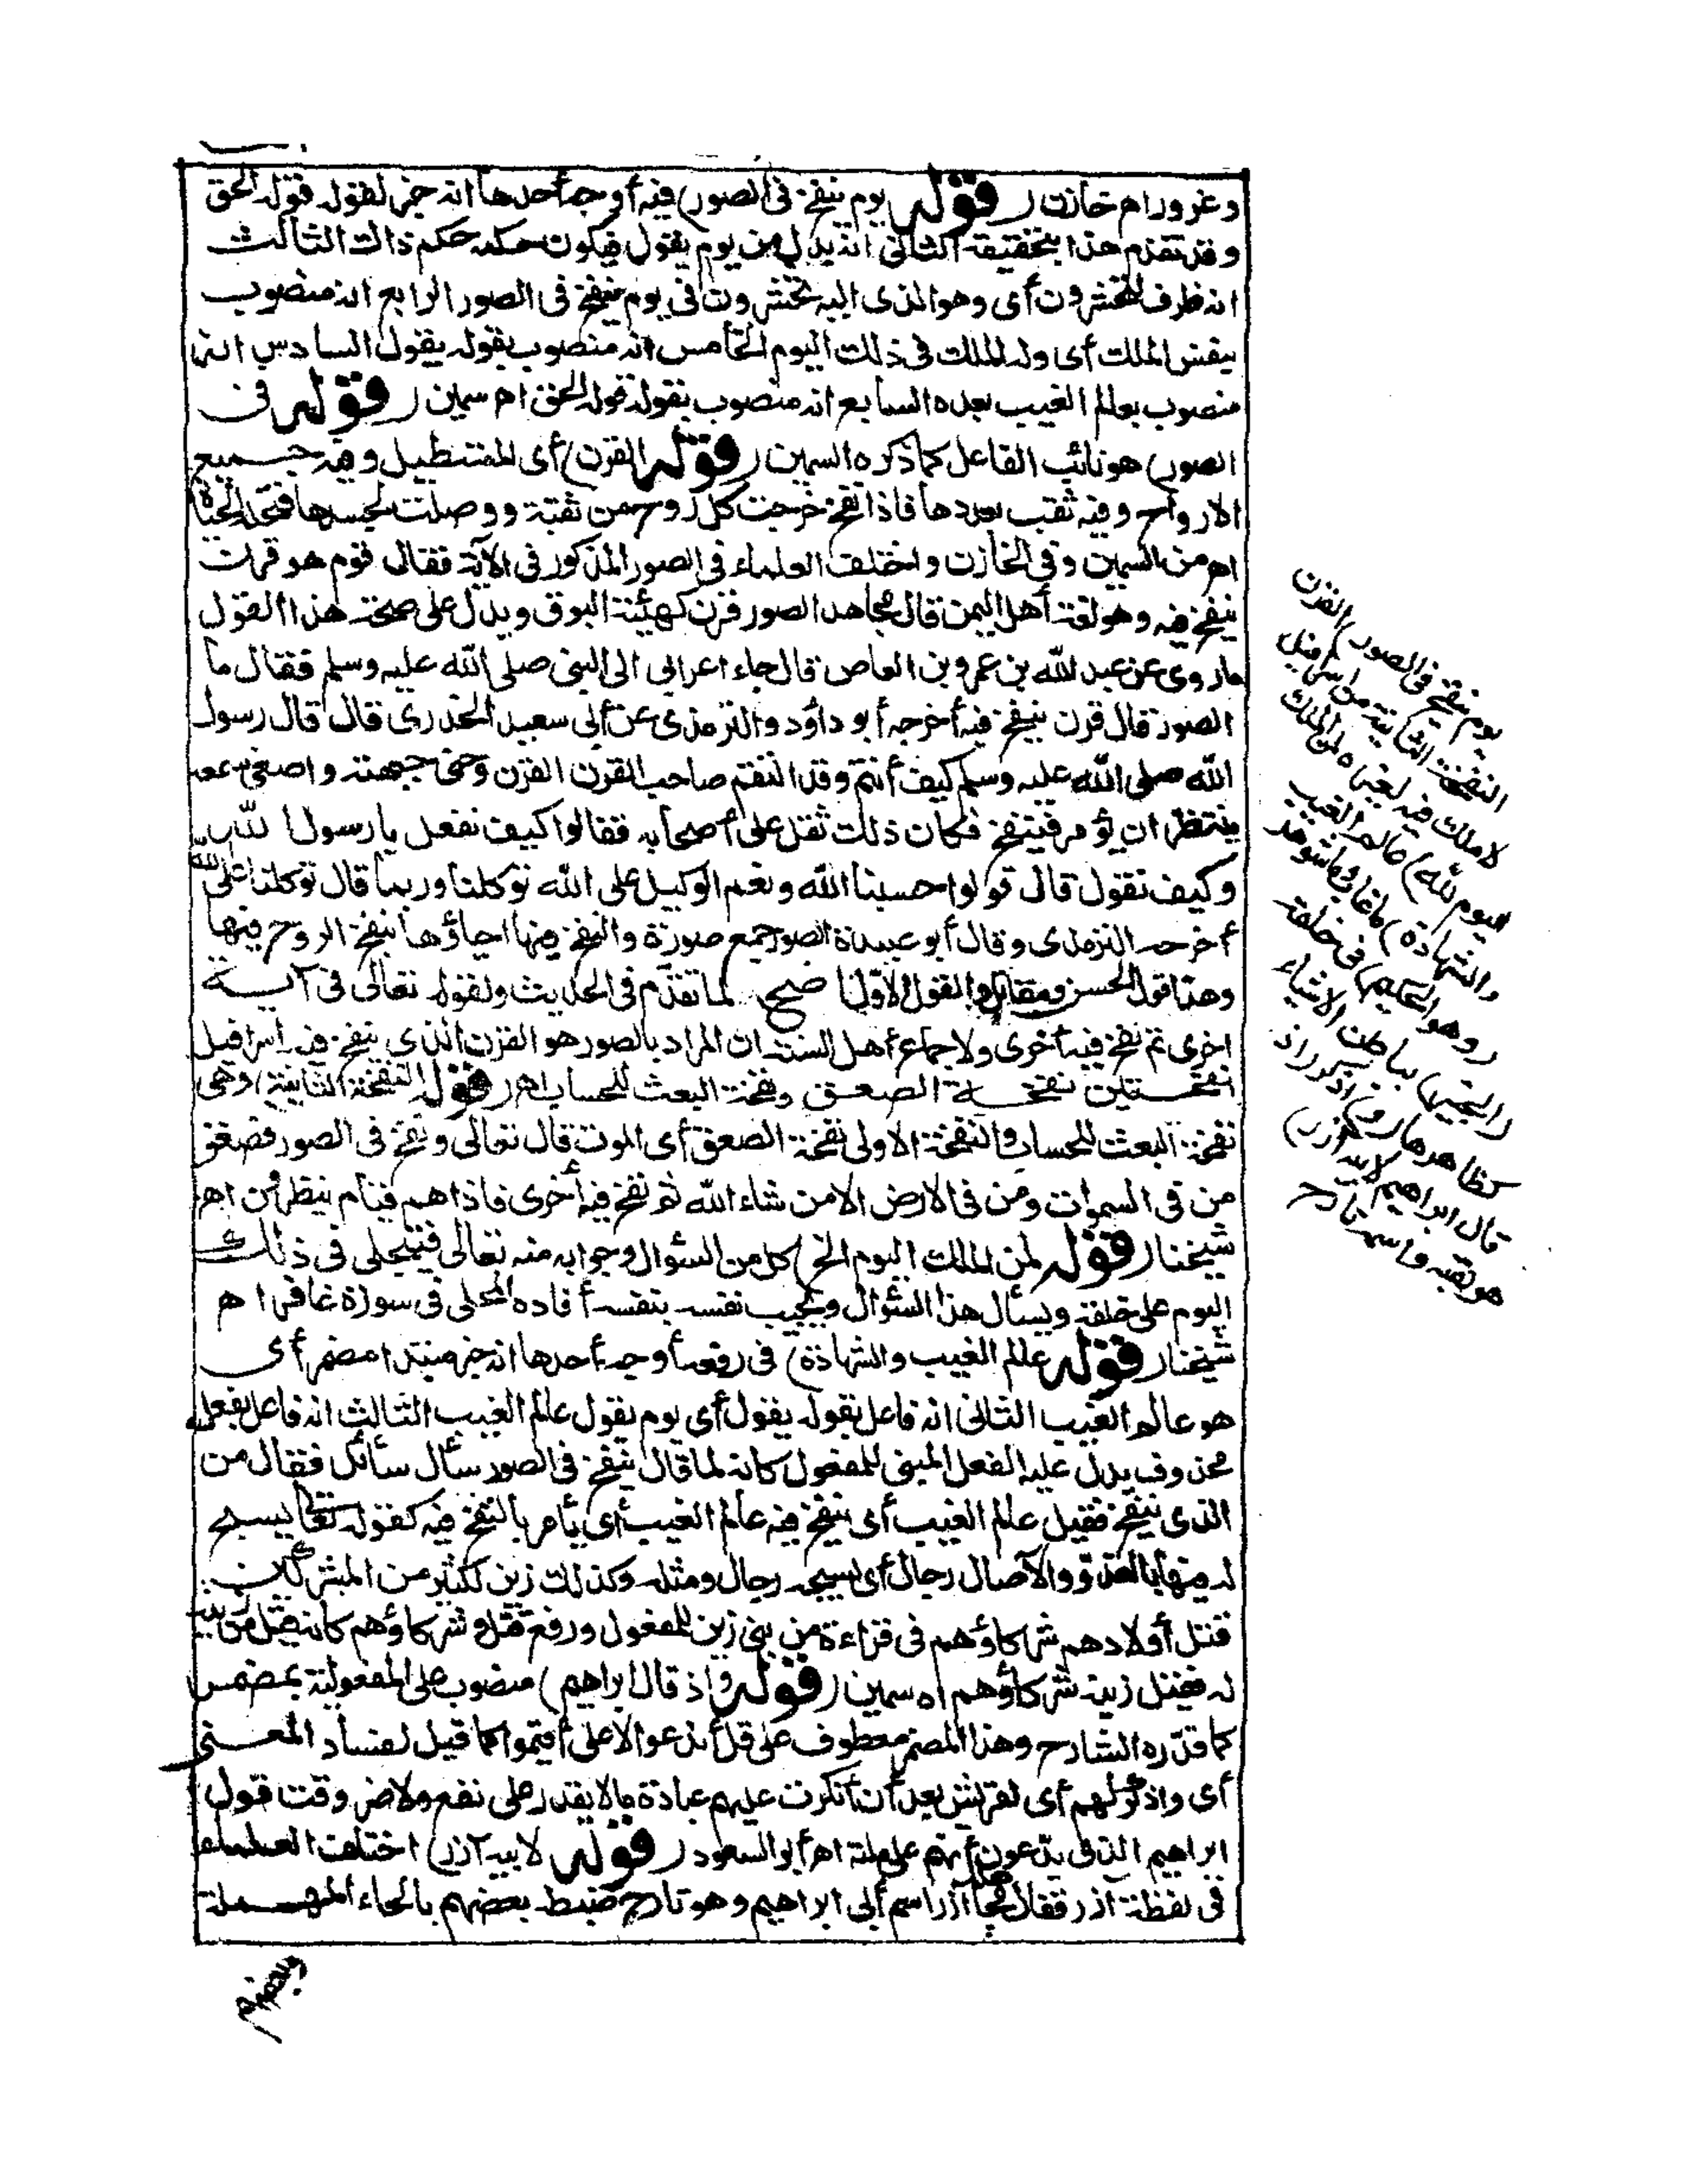 وغرور اه خازن (قوله يوم ينفخ في الصور) فيه أوجه أحدها انه خبر لقوله قوله الحق
وقد تقدم هذا بتحقيقه الثاني انه بدل من يوم يقول فيكون حكمه حكم ذاك الثالث
انه ظرف لتحشرون أى وهو الذى اليه تحشرون فى يوم ينفخ فى الصور الرابع انه منصوب
بنفس الملك أى وله الملك فى ذلك اليوم الخامس انه منصوب بقوله يقول السادس انه
منصوب بعالم الغيب بعده السابع انه منصوب بقوله قوله الحق اه سمين (قوله فى
الصور) هو نائب الفاعل كما ذكره السمين (قوله القرن) أى المستطيل وفيه جميع
الارواح وفيه ثقب بعددها فاذا نفخ خرجت كل روح من ثقبة ووصلت لجسدها فتحله الحياة
اه من السمين وفى الخازن واختلف العلماء فى الصور المذكور فى الآية فقال قوم هو قرن
ينفخ فيه وهو لغة أهل اليمن قال مجاهد الصور قرن كهيئة البوق ويدل على صحة هذا القول
ما روى عن عبد الله بن عمرو بن العاص قال جاء اعرابى الى النبى صلى الله عليه وسلم فقال ما
الصور قال قرن ينفخ فيه أخرجه أبو داود والترمذى عن أبى سعيد الخدرى قال قال رسول
الله صلى الله عليه وسلم كيف أنتم وقد التقم صاحب القرن القرن وحنى جبهته واصغى سمعه
ينتظر ان يؤمر فينفخ فكان ذلك ثقل على أصحابه فقالوا كيف نفعل يا رسول الله
وكيف نقول قال قولوا حسبنا الله ونعم الوكيل على الله توكلنا وربما قال توكلنا على الله
أخرجه الترمذى وقال أبو عبيدة الصور جمع صورة والنفخ فيها احياؤها بنفخ الروح فيها
وهذا قول الحسن ومقاتل والقول الاول اصح لما تقدم فى الحديث ولقوله تعالى فى آية
اخرى ثم نفخ فيه أخرى ولاجماع أهل السنة ان المراد بالصور هو القرن الذى ينفخ فيه اسرافيل
نفختين نفخة الصعق ونفخة البعث للحساب اه (قوله النفخة الثانية) وهى
نفخة البعث للحساب والنفخة الاولى نفخة الصعق أى الموت قال تعالى ونفخ فى الصور فصعق
من فى السموات ومن فى الارض الا من شاء الله ثم نفخ فيه أخرى فاذا هم قيام ينظرون اه
شيخنا (قوله لمن الملك اليوم الخ) كل من السؤال وجوابه منه تعالى فيتجلى فى ذلك
اليوم على خلقه ويسأل هذا السؤال ويجيب نفسه بنفسه أفاده المحلى فى سورة غافر اه
شيخنا (قوله عالم الغيب والشهادة) فى رفعه أوجه أحدها انه خبر مبتدا مضمر أى
هو عالم الغيب الثانى انه فاعل بقوله يقول أى يوم يقول عالم الغيب الثالث انه فاعل بفعل
محذوف يدل عليه الفعل المبنى للمفعول كانه لما قال ينفخ فى الصور سأل سائل فقال من
الذى ينفخ فقيل عالم الغيب أى ينفخ فيه عالم الغيب أى يأمر بالنفخ فيه كقوله تعا يسبح
له فيها بالغدو والآصال رجال أى يسبحه رجال ومثله وكذلك زين لكثير من المشركين
قتل أولادهم شركاؤهم فى قراءة من بنى زين للمفعول ورفع قتل وشركاؤهم كانه قيل من زينه
له فقيل زينه شركاؤهم اه سمين (قوله واذ قال ابراهيم) منصوب على المفعولية بمضمر
كما قدره الشارح وهذا المضمر معطوف على قل أندعوا لا على أقيموا كما قيل لفساد المعنى
أى واذكر لهم أى لقريش بعد أن أنكرت عليهم عبادة مالا يقدر على نفع ولا ضر وقت قول
ابراهيم الذى يدعون أنهم على ملته اه أبو السعود (قوله لابيه آزر) اختلف العلماء
فى لفظة آزر فقال مجاهد آزر اسم أبى ابراهيم وهو تارح ضبط بعضهم بالحاء المهملة
وبعضهم
يوم ينفخ فى الصور) القرن
النفخة الثانية من اسرافيل
لا ملك فيه لغيره لمن الملك
اليوم لله) عالم الغيب
والشهادة) ما غاب وما شوهد
(وهو الحكيم) فى خلقه
(الخبير) بباطن الاشياء
كظاهرها (و) اذكر (اذ
قال ابراهيم لابيه آزر)
هو لقبه واسمه تارح